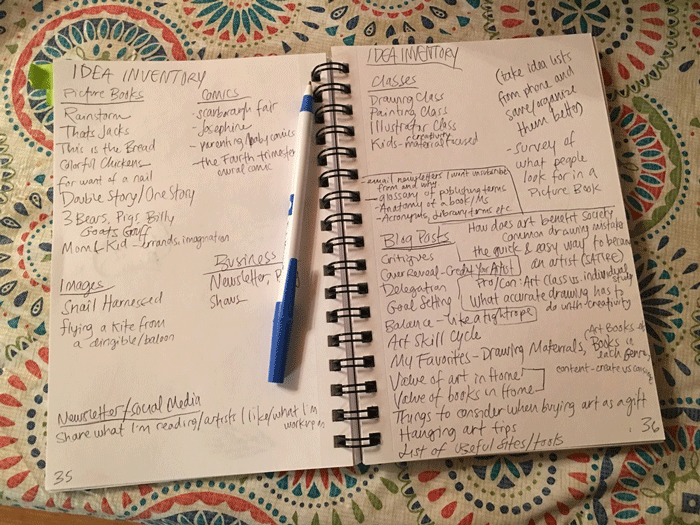 IDEA INVENTORY
Picture Books
Rainstorm
Thats Jacks
This is the Bread
Colorful Chickens
for want of a nail
Double Story/One Story
3 Bears, Pigs, Billy
Goats Gruff
Mom & Kid - Errands, imagination
Comics
scarborough fair
- Josephine
- parenting/baby comics
- the Fourth trimester
mural comic
Business
Newsletter, P
Shows
Images
Snail Harnessed
flying a kite from
a dirigible/baloon
Newsletter/Social Media
Share what I'm reading/artists I like/what I'm
working on
35
IDEA INVENTORY
Classes
Drawing Class
Painting Class
Illustrator Class
Kids - creativity
material focused
(take idea lists
from phone and
save/organize
them better)
- survey of
what people
look for in a
Picture Book
- email newsletters I want unsubscribe
from and why
- glossary of publishing terms
- Anatomy of a book/Ms
- Acronyms, library terms etc
Blog Posts
Critiques
Cover Reveal - Credit Your Artist
Delegation
Goal Setting
Balance - like a tightrope
Art Skill Cycle
My Favorites - Drawing Materials,
Value of art in Home
Value of books in Home
Things to consider when buying art as a gift
Hanging art tips
List of Useful Sites/tools
How does art benefit society
common drawing mistake
the quick & easy way to become
an artist (SATIRE)
Pro/Con: Art Class vs. individual
study
What accurate drawing has to
do with creativity
(Art Books
Books in
each Genre,
content - create vs
36